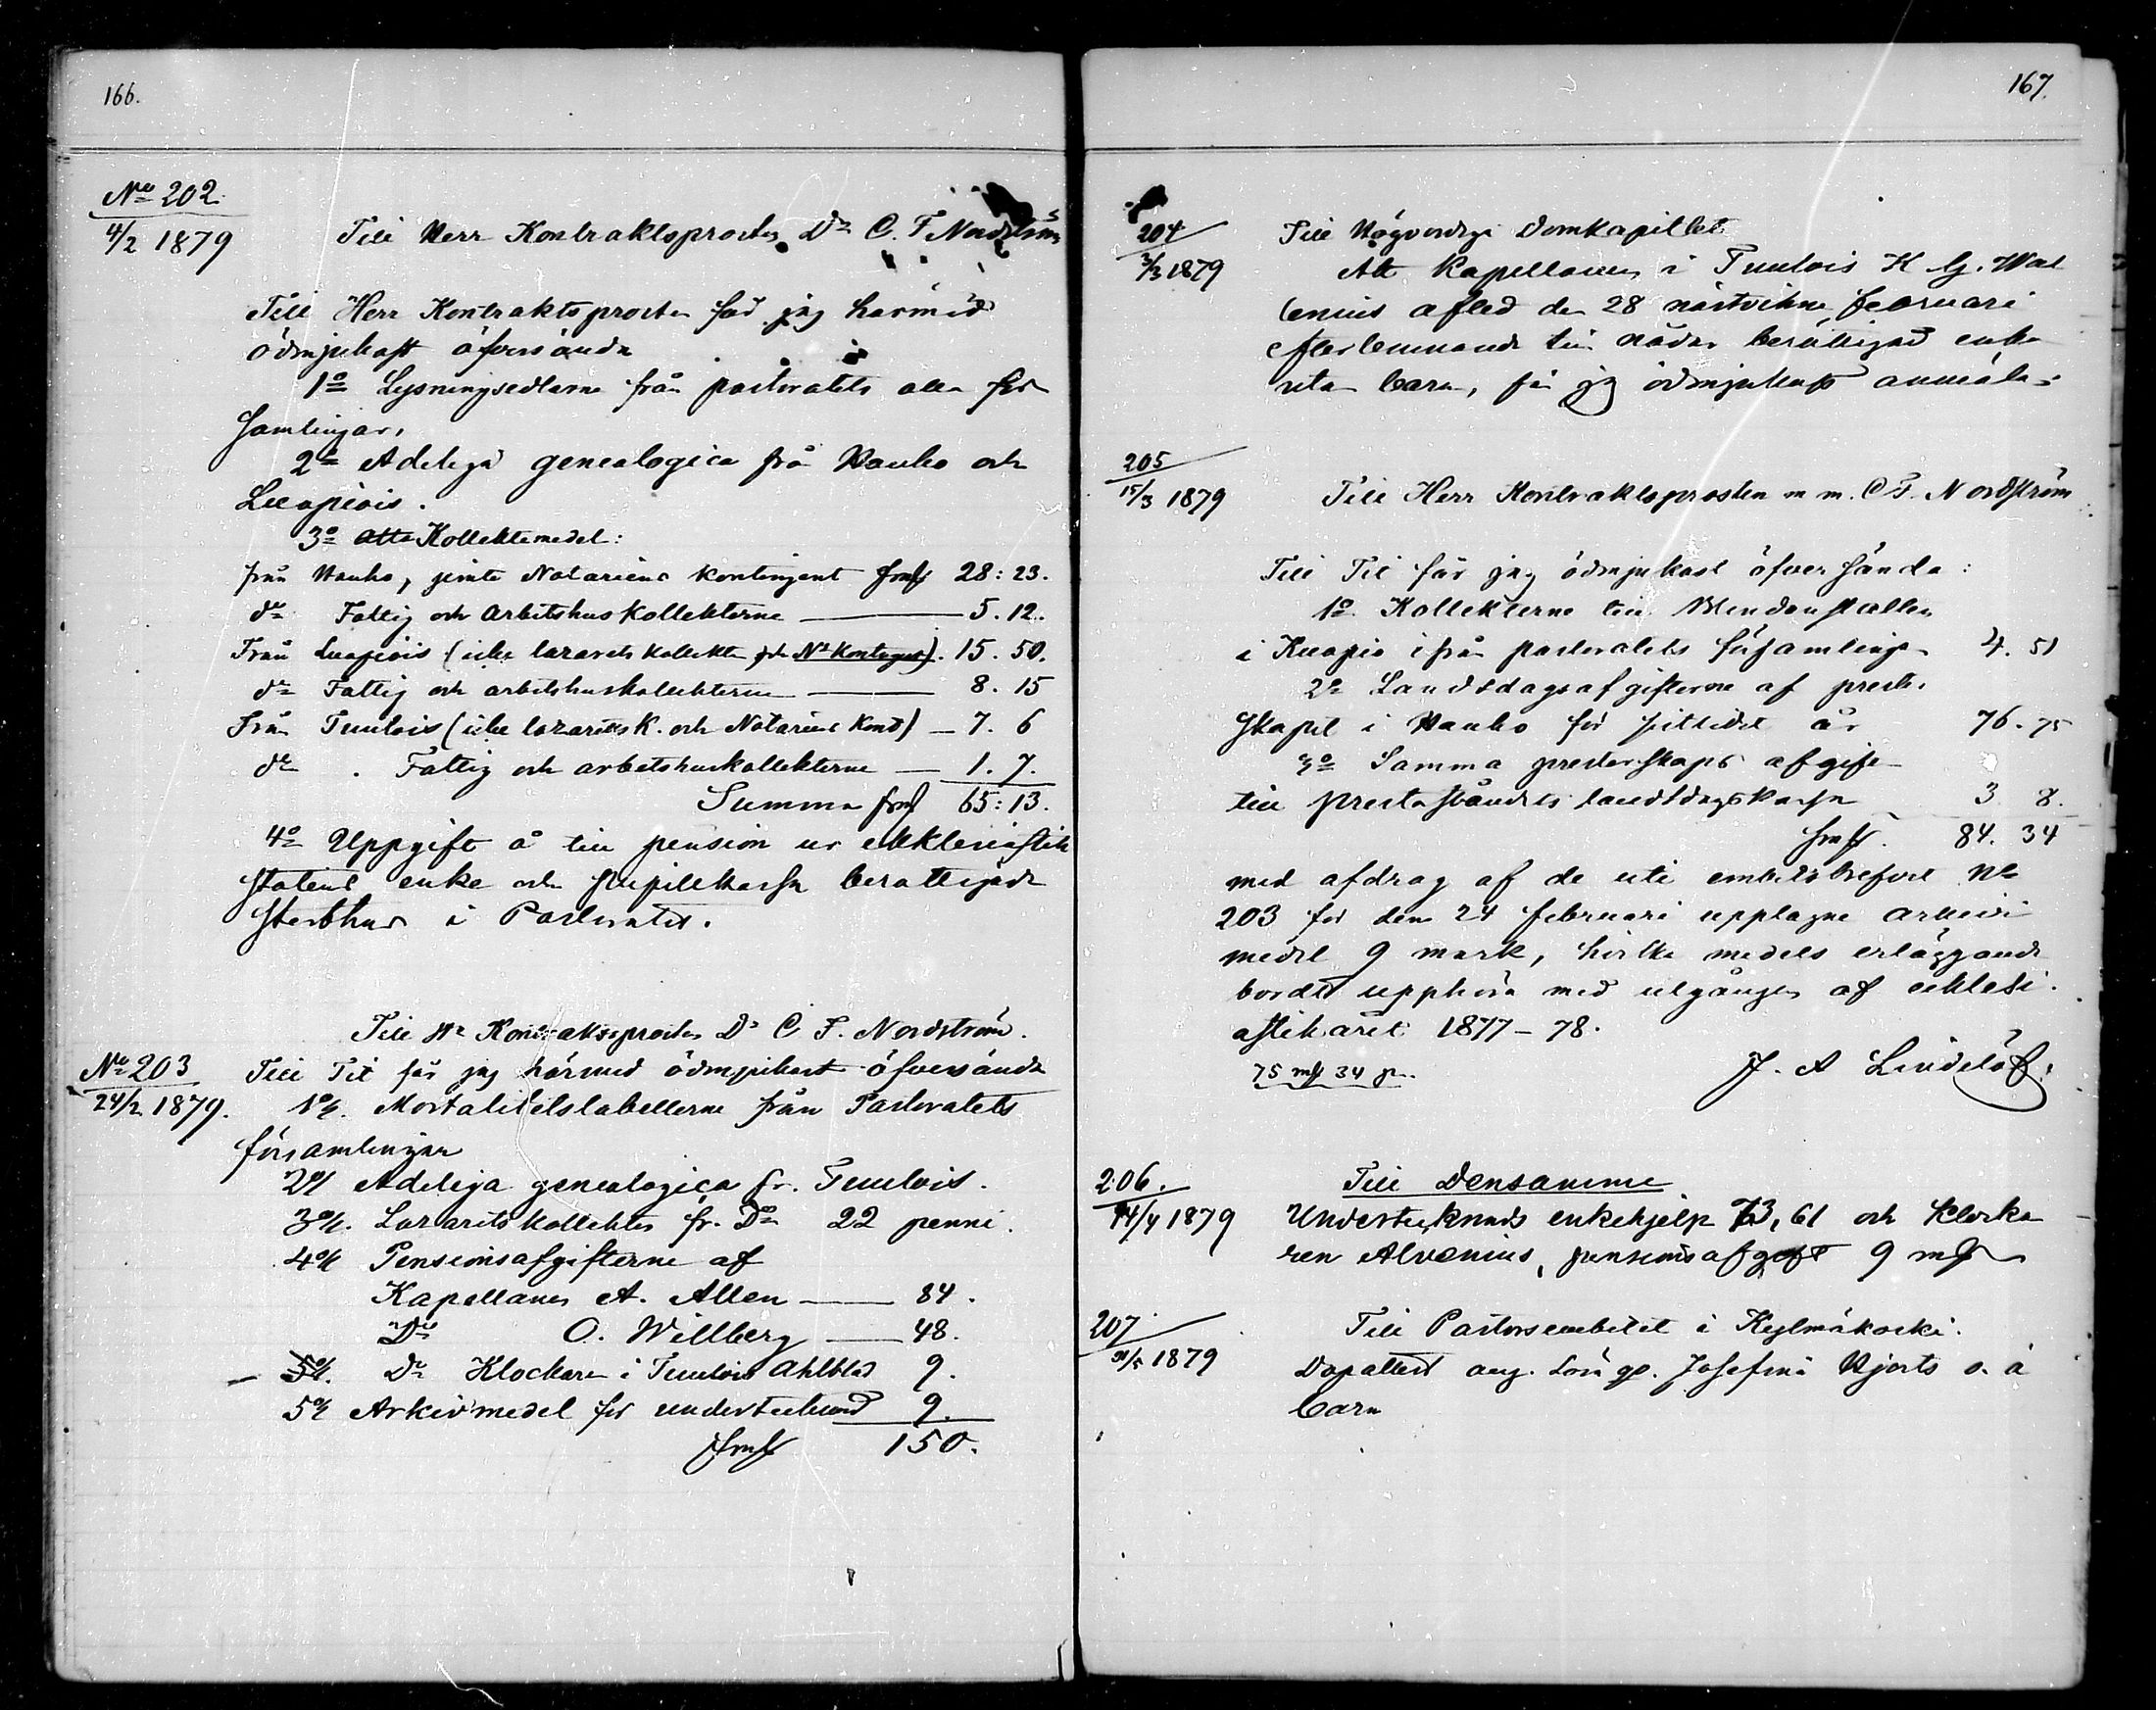 166.
No 202.
4/2 1879
Till Herr Kontraktsprosten Dr C. F. Nordström
Till Herr Kontraktsprosten får jag härmed
ödmjukast öfversända
1o Lysningsedlarne från pastoratets alla för
samlingar.
2o Adeliga genealogica från Hauho och
Luopiois.
3o Kollektemedel:
från Hauho, jemte Notariens kontingent fmk 28: 23.
do Fattig och arbetshuskollekterne 5. 12.
Från Luopiois (icke lazarets kollekten och Ns Kontingent). 15. 50.
do Fattig och arbetshuskollekterne 8. 15
Från Tuulois (icke lazarets k. och Notariens Kont) 7. 6
do Fattig och arbetshuskollekterne 1. 7.
Summa fmk 65: 13.
4o Uppgift å till pension ur ekklesiastik
statens enke och pupillkassa berättigade
sterbhus i Pastoratet.
Till Hr Kontraktsprosten Dr C. F. Nordström.
No 203
24/2 1879.
Till Tit får jag härmed ödmjukast öfversända
1o/. Mortalitetstabellerne från Pastoratets
församlingar
2o/ Adeliga genealogica fr. Tuulois.
3o/. Lazaretskollekten fr. Do 22 penni.
4o/ Pensionsafgifterne af
Kapellanen A. Allen 84.
Do O. Willberg 48.
5o/. Do Klockaren i Tuulois Ahlblad 9.
5o/ Arkivmedel för undertecknad 9.
fmk 150.
167.
204
3/3 1879
Till Högvördige Domkapitlet
Att Kapellanen i Tuulois K G. Wal
lenius afled den 28 nästvikne februari
efterlemnande till nådår berättigad enka
utan barn, får jag ödmjukast anmäla.
205
15/3 1879
Till Herr Kontraktsprosten m m. C F. Nordström
Till Tit får jag ödmjukast öfversända:
1o Kollekterne till Blindanstalten
i Kuopio ifrån pastoratets församlingar 4. 51
2o Landtdagsafgifterne af prester
skapet i Hauho för sittidet år 76. 75
3o Samma presterskaps afgift
till preståndets landtdagskassa 3 8.
fmk. 84. 34
med afdrag af de uti embetsbrefvet No
203 för den 24 februari upptagne arkivi
medel 9 mark, hvilka medels erläggande
bordt upphöra med utgången af ecklesi
astikåret 1877-78.
75 mk 34 p.
J. A Lindelöf.
206.
14/4 1879
Till Densamme
Undertecknads enkehjelp 73, 61 och klocka
ren Alvenius, pensionsafgift 9 mk
207
1879
Till Pastorsembetet i Kylmäkoski.
Dopattest ang. Josefina Hjorts o. ä
barn